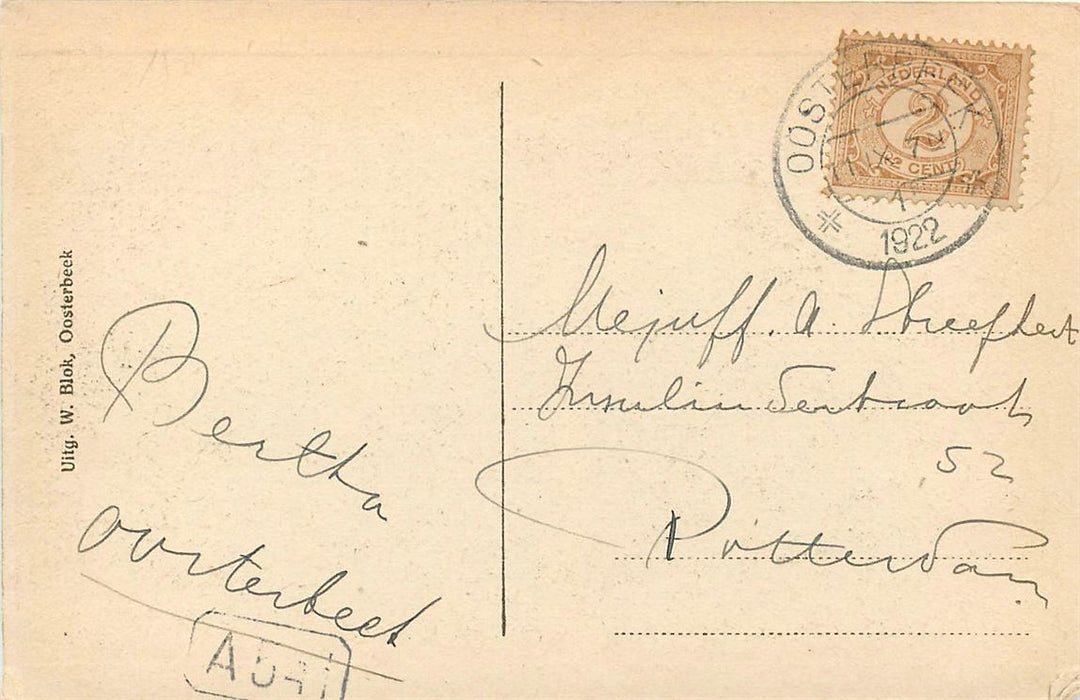 Uitg. W. Blok, Oosterbeek
Bertha
Oosterbeek
NEDERLAND
2
2 CENT
OOSTERBEEK
1
1922
Mejuff. A. Streefkerk
52
Rotterdam